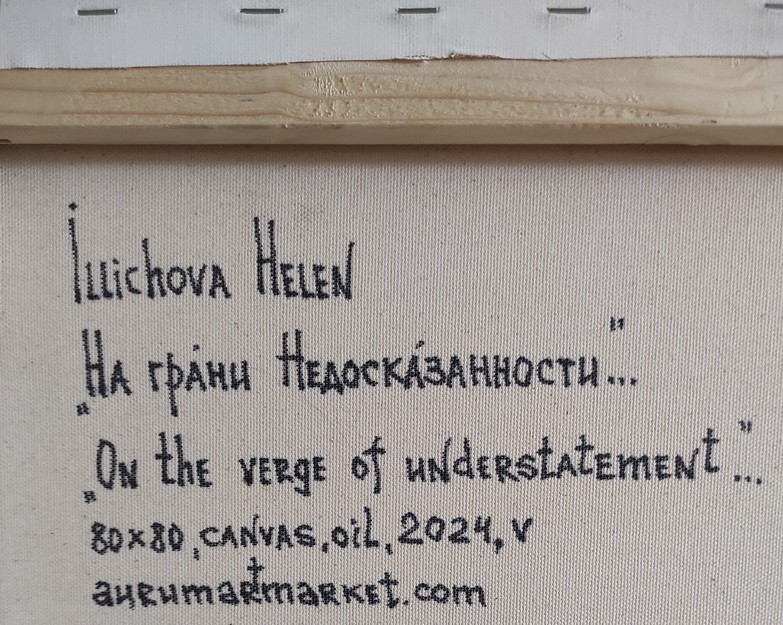 Illichova Helen
„На гра́ни Недоска́занности"...
„On the verge of understatement"...
80x80, canvas, oil, 2024, v
aurumartmarket.com